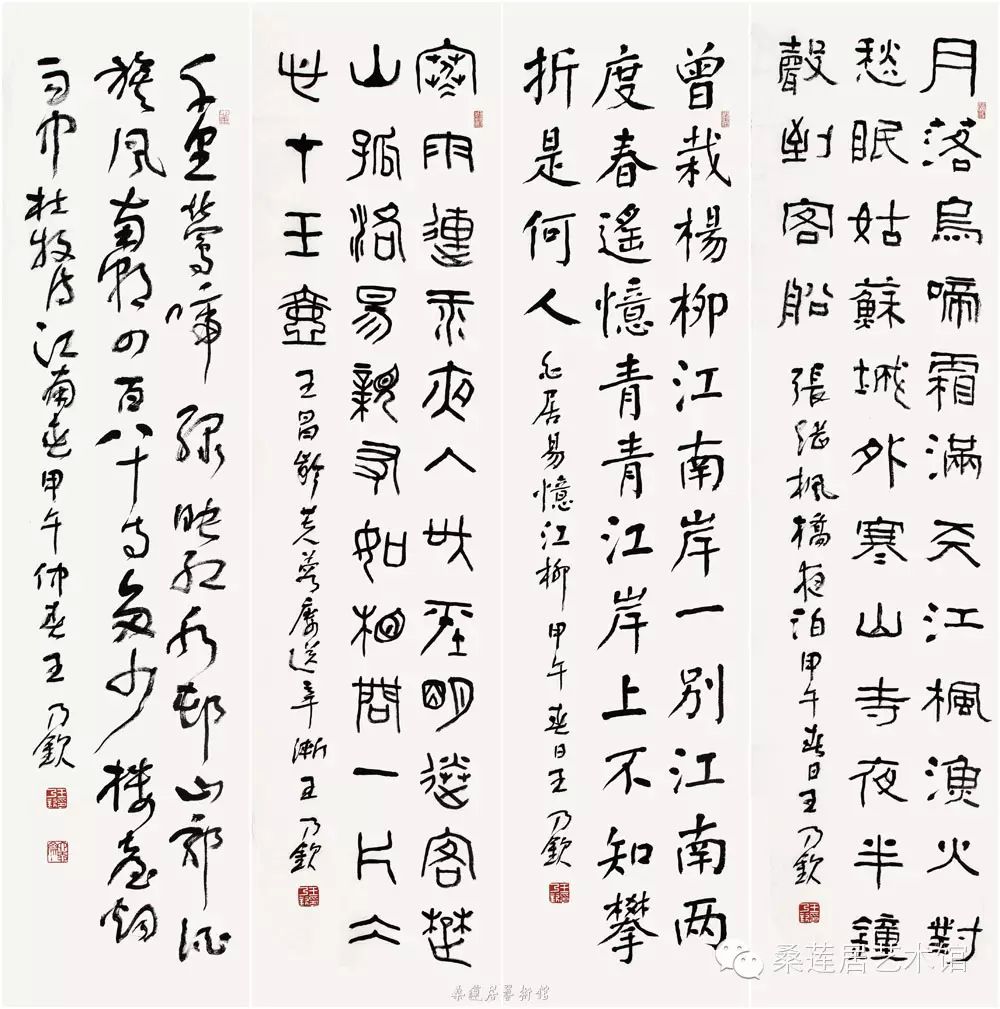 月落烏啼霜滿天江楓漁火對
愁眠姑蘇城外寒山寺夜半鐘
聲到客船 張继枫橋夜泊甲午春日王乃欽
曾栽楊柳江南岸一别江南两
度春遙憶青青江岸上不知攀
折是何人 白居易憶江柳 甲午春日王乃欽
寒雨連天夜入吴平明送客楚
山孤洛昜親友如相問一片仌
心在玉壺 王昌齡芙蓉樓送辛漸王乃欽
千里鶯啼綠映紅水邨山郭酒
旗風南朝四百八十寺多少樓臺烟
雨中 杜牧诗江南春甲午仲春王乃欽
桑蓮居藝術館
桑莲居艺术馆